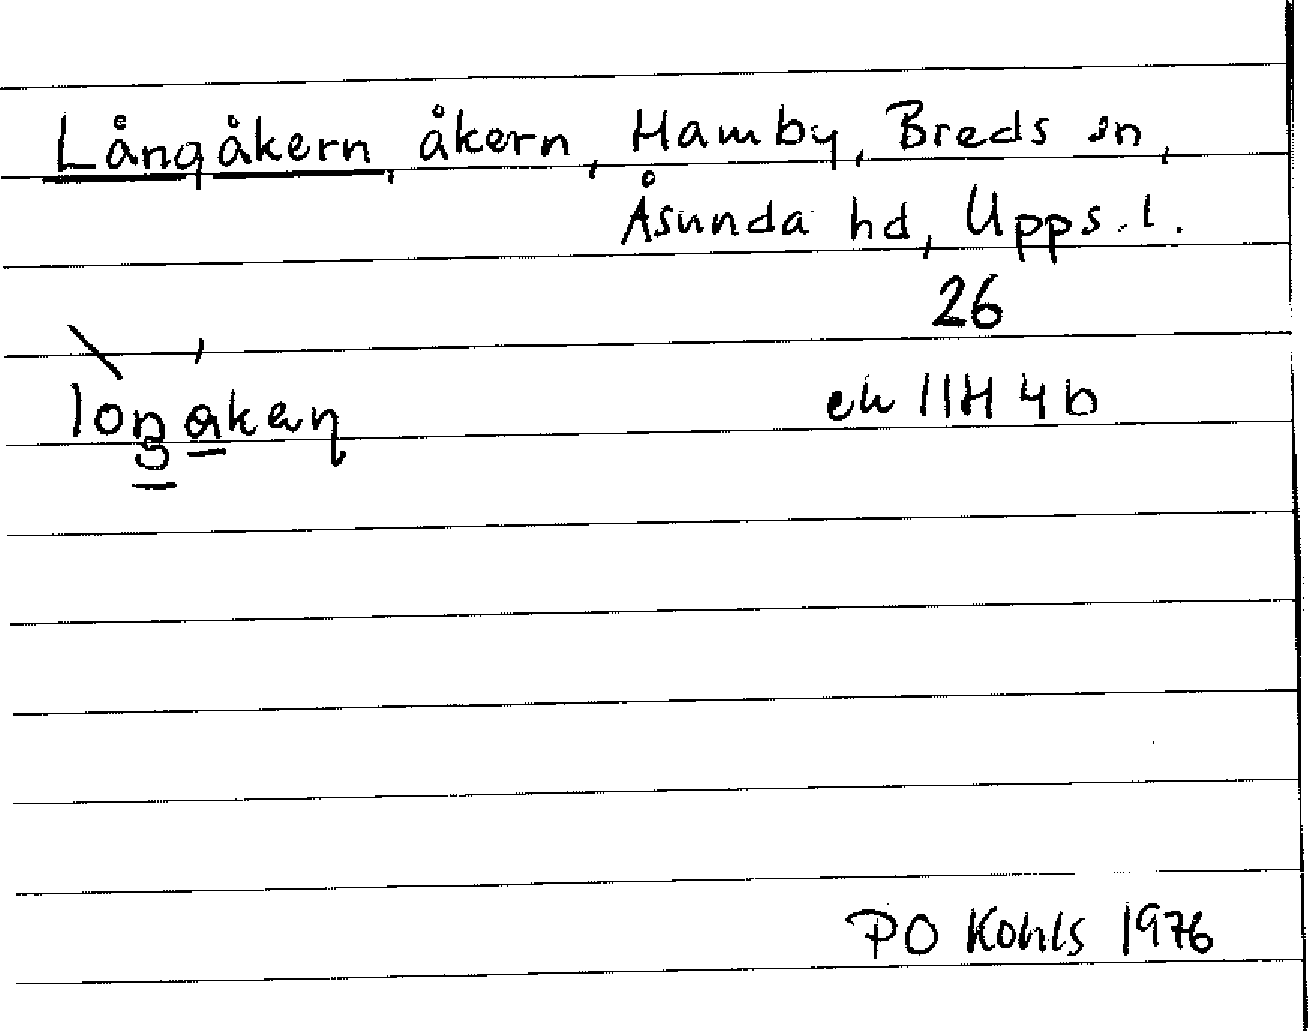 Långåkern, åkern, Hamby, Breds sn,
Åsunda hd, Upps. l.
26
ek 11H 4b
PO Kohls 1976